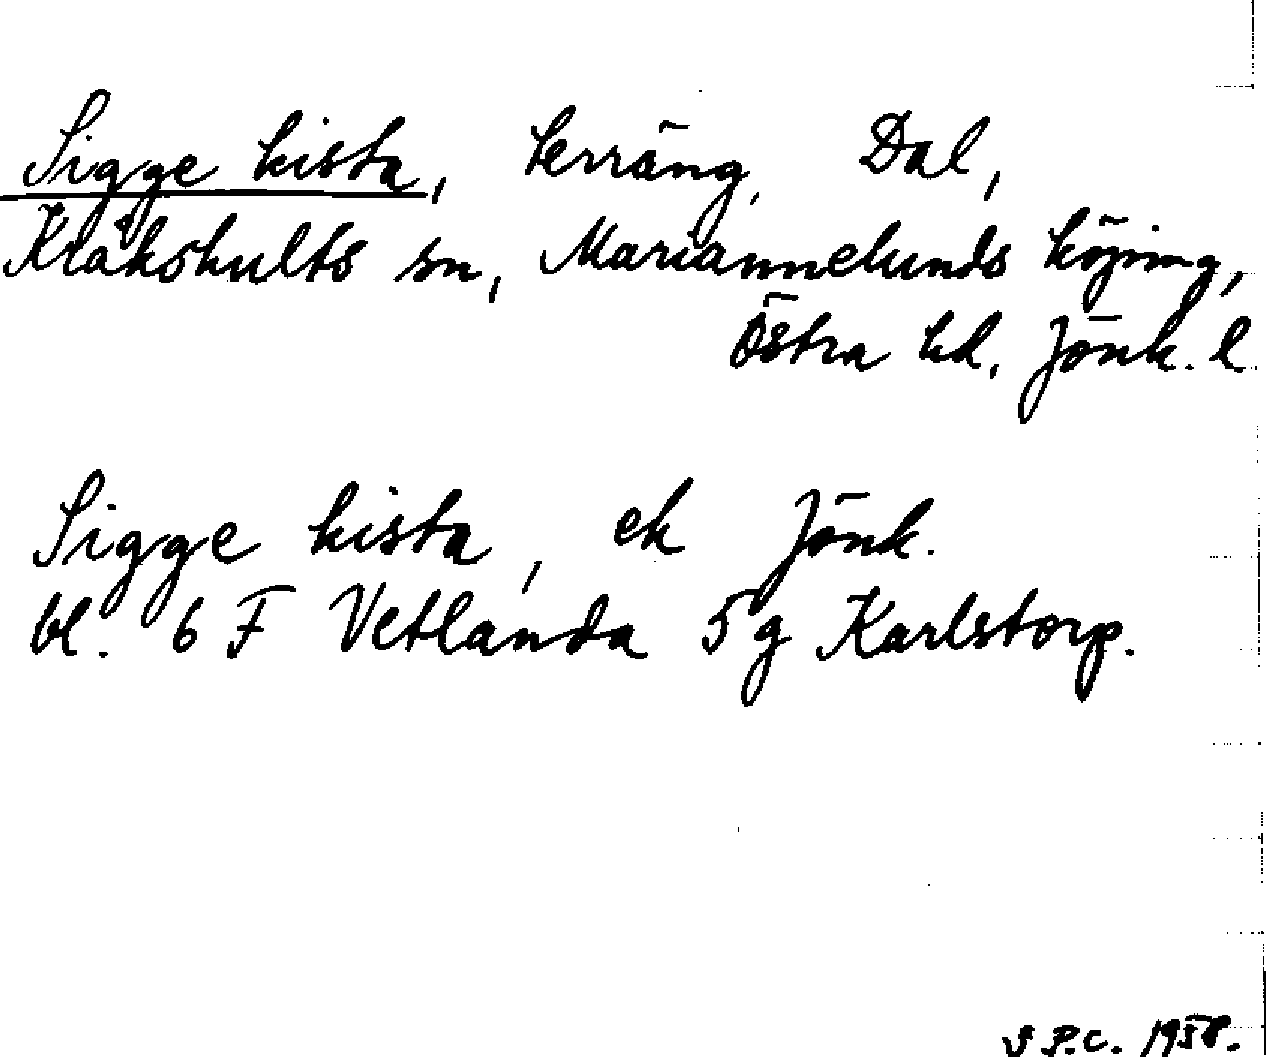 Sigge kista, terräng, Dal,
Kråkshults sn, Mariannelunds köping,
Östra hd, Jönk. l.
Sigge kista, ek Jönk.
bl. 6 F Vetlanda 5 g Karlstorp.
S P.C. 1958.